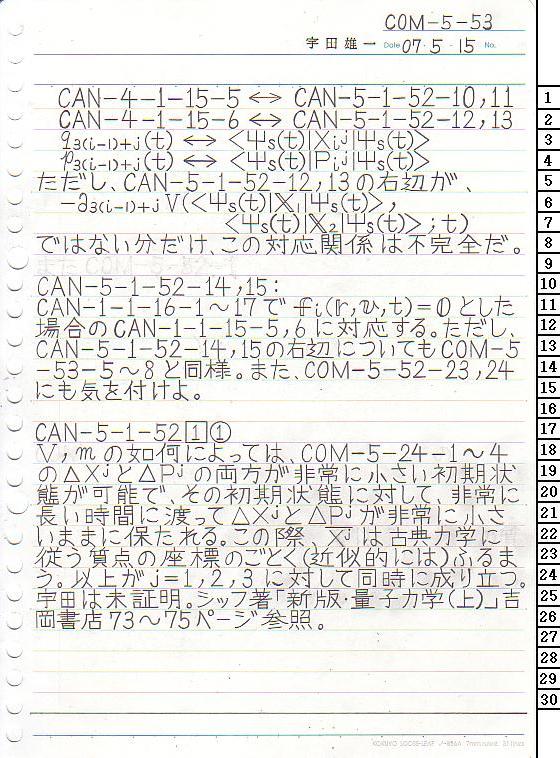 COM-5-53
宇田雄一 Date 07・5・15 No.
CAN-4-1-15-5 ⟷ CAN-5-1-52-10,11
CAN-4-1-15-6 ⟷ CAN-5-1-52-12,13
q₃₍ᵢ₋₁₎₊ⱼ(t) ⟷ <Ψs(t)|Xᵢʲ|Ψs(t)>
p₃₍ᵢ₋₁₎₊ⱼ(t) ⟷ <Ψs(t)|Pᵢʲ|Ψs(t)>
ただし、CAN-5-1-52-12,13の右辺が、
-∂₃₍ᵢ₋₁₎₊ⱼV(<Ψs(t)|𝕏₁|Ψs(t)>,
<Ψs(t)|𝕏₂|Ψs(t)>;t)
ではない分だけ、この対応関係は不完全だ。
CAN-5-1-52-14,15:
CAN-1-1-16-1〜17で fᵢ(r,v,t)=0とした
場合のCAN-1-1-15-5,6に対応する。ただし、
CAN-5-1-52-14,15の右辺についてもCOM-5
-53-5〜8と同様。また、COM-5-52-23,24
にも気を付けよ。
CAN-5-1-52[1]①
V,mの如何によっては、COM-5-24-1〜4
の△Xʲと△Pʲの両方が非常に小さい初期状
態が可能で、その初期状態に対して、非常に
長い時間に渡って△Xʲと△Pʲが非常に小さ
いままに保たれる。この際、X̄ʲは古典力学に
従う質点の座標のごとく(近似的には)ふるま
う。以上がj=1,2,3に対して同時に成り立つ。
宇田は未証明。シッフ著「新版・量子力学(上)」吉
岡書店73〜75ページ参照。
KOKUYO LOOSE-LEAF ノ-836A 7mm ruled 31 lines
1
2
3
4
5
6
7
8
9
10
11
12
13
14
15
16
17
18
19
20
21
22
23
24
25
26
27
28
29
30